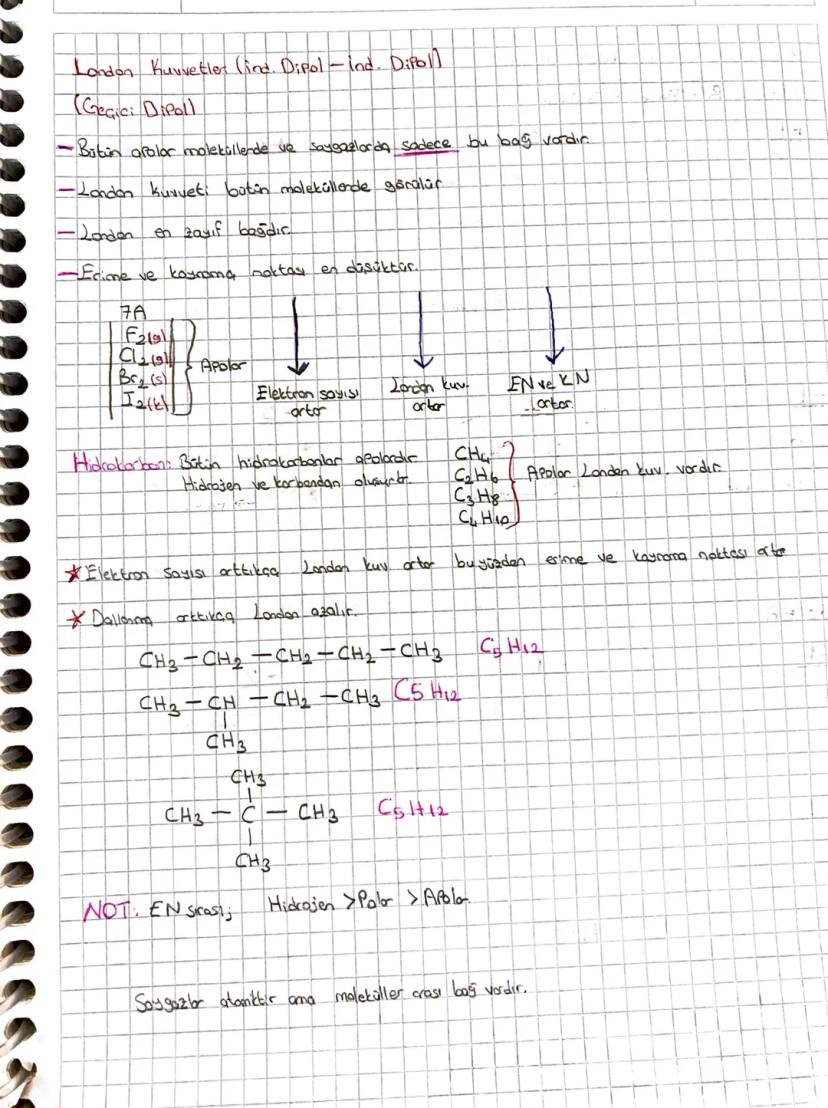 London Kuvvetleri (ind. Dipol - ind. Dipol)
(Geçici Dipol)
- Bütün apolar moleküllerde ve soygazlarda sadece bu bağ vardır.
- London kuvveti bütün moleküllerde görülür
- London en zayıf bağdır.
- Erime ve kaynama noktası en düşüktür.
7A
F2(g)
Cl2(g)
Br2(s)
I2(k)
Apolar
Elektron sayısı
artar
London kuv.
artar
EN ve KN
artar.
Hidrokarbon: Bütün hidrokarbonlar apolardır.
Hidrojen ve karbondan oluşur.
CH4
C2H6
C3H8
C4H10
Apolar London kuv. vardır.
* Elektron sayısı arttıkça London kuv artar bu yüzden erime ve kaynama noktası artar
* Dallanma arttıkça London azalır.
CH3 - CH2 - CH2 - CH2 - CH3 C5H12
CH3 - CH - CH2 - CH3 C5H12
CH3
CH3
CH3 - C - CH3 C5H12
CH3
NOT: EN sırası; Hidrojen > Polar > Apolar
Soygazlar atomiktir ama moleküller arası bağ vardır.